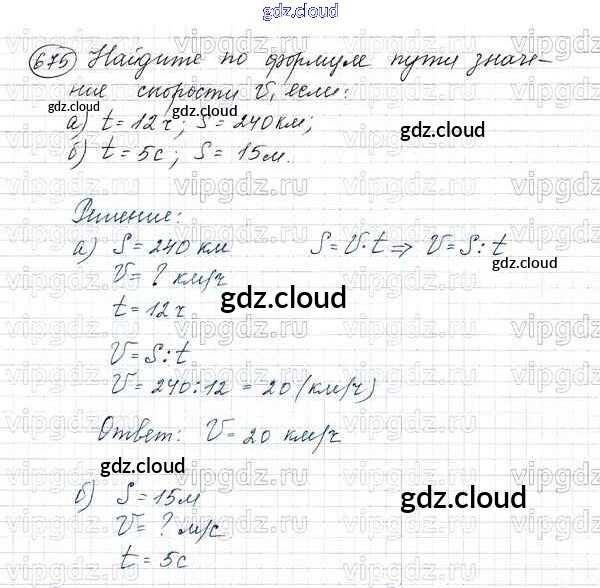 gdz.cloud
675 Найдите по формуле пути значе-
ние скорости V, если:
gdz.cloud gdz.cloud
а) t = 12 ч ; S = 240 км;
gdz.cloud
б) t = 5с ; S = 15м.
Решение:
а) S = 240 км S = V·t => V = S : t
gdz.cloud
V = ? км/ч
t = 12 ч
gdz.cloud
V = S : t
V = 240 : 12 = 20 (км/ч)
Ответ: V = 20 км/ч
gdz.cloud gdz.cloud
б) S = 15м
gdz.cloud
V = ? м/с
t = 5с